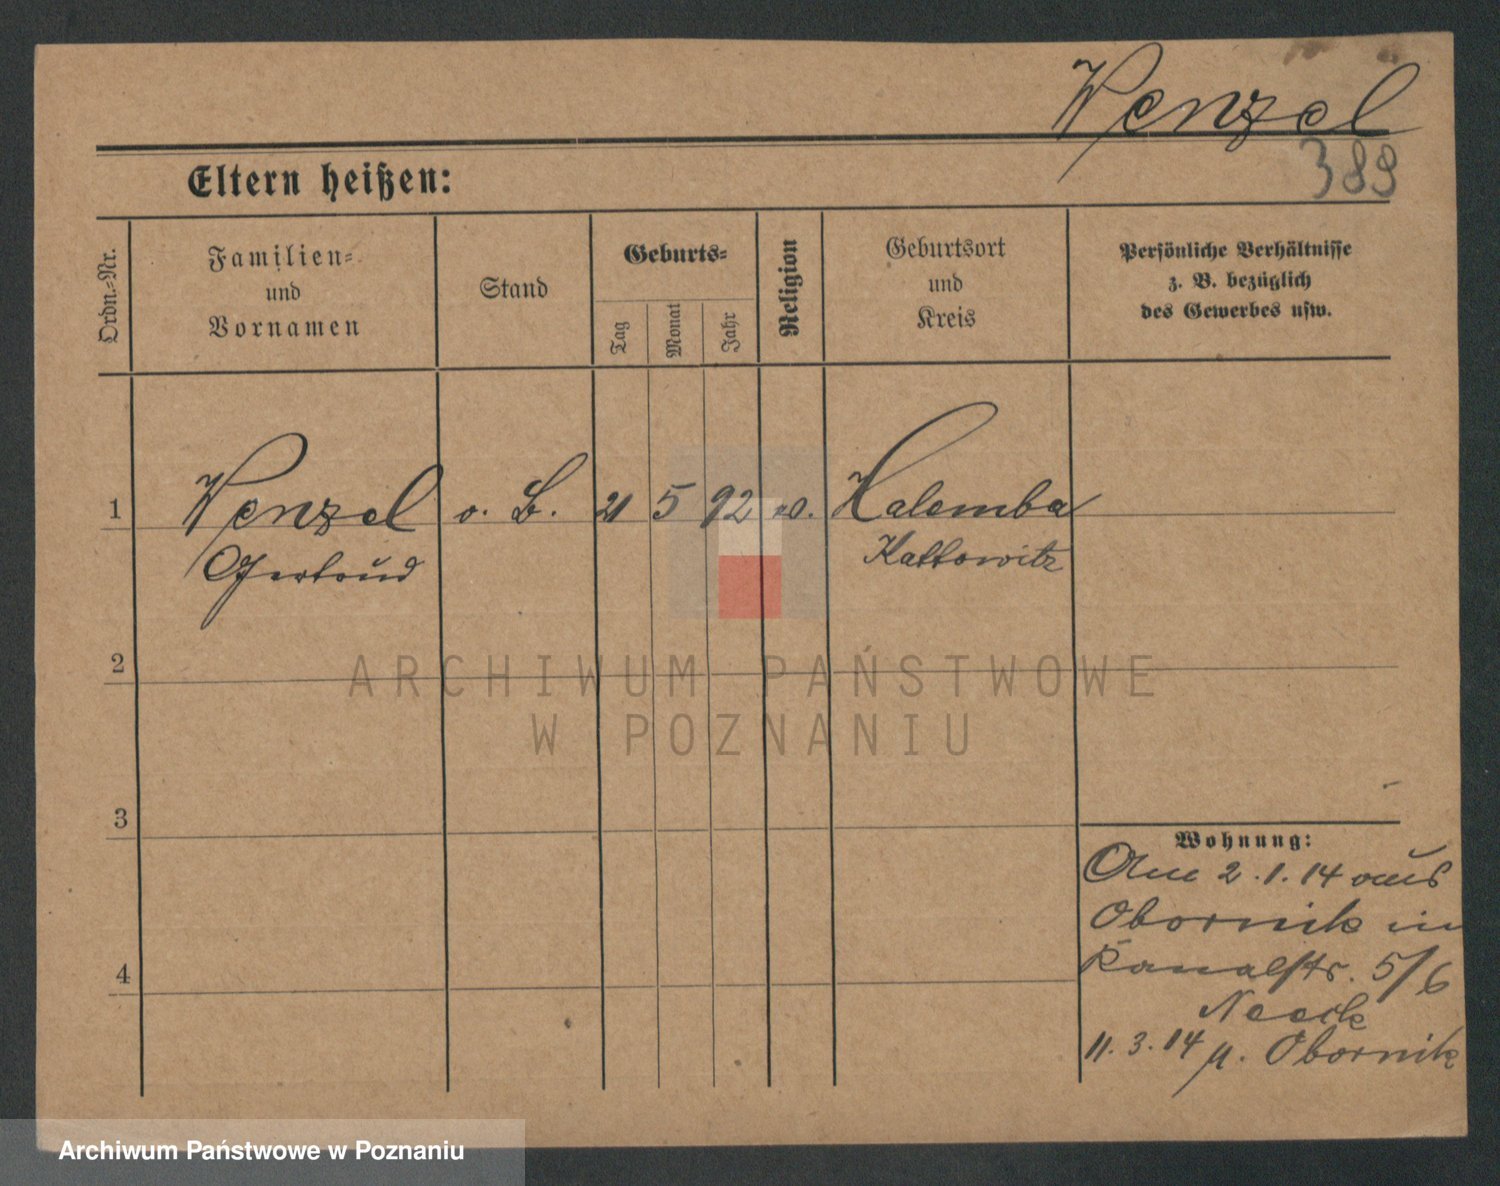 Wenzel
389
Eltern heißen:
Ordn.-Nr.
Familien-
und
Vornamen
Stand
Geburts-
Tag
Monat
Jahr
Religion
Geburtsort
und
Kreis
Persönliche Verhältnisse
z. B. bezüglich
des Gewerbes usw.
1
Wenzel o. B. 21 5 92 Halemba
Gertrud Kattowitz
2
3
4
Wohnung:
Am 2.1.14 aus
Obornik in
Kanalstr. 5/6
11.3.14 n. Obornik
ARCHIWUM PAŃSTWOWE
W POZNANIU
Archiwum Państwowe w Poznaniu